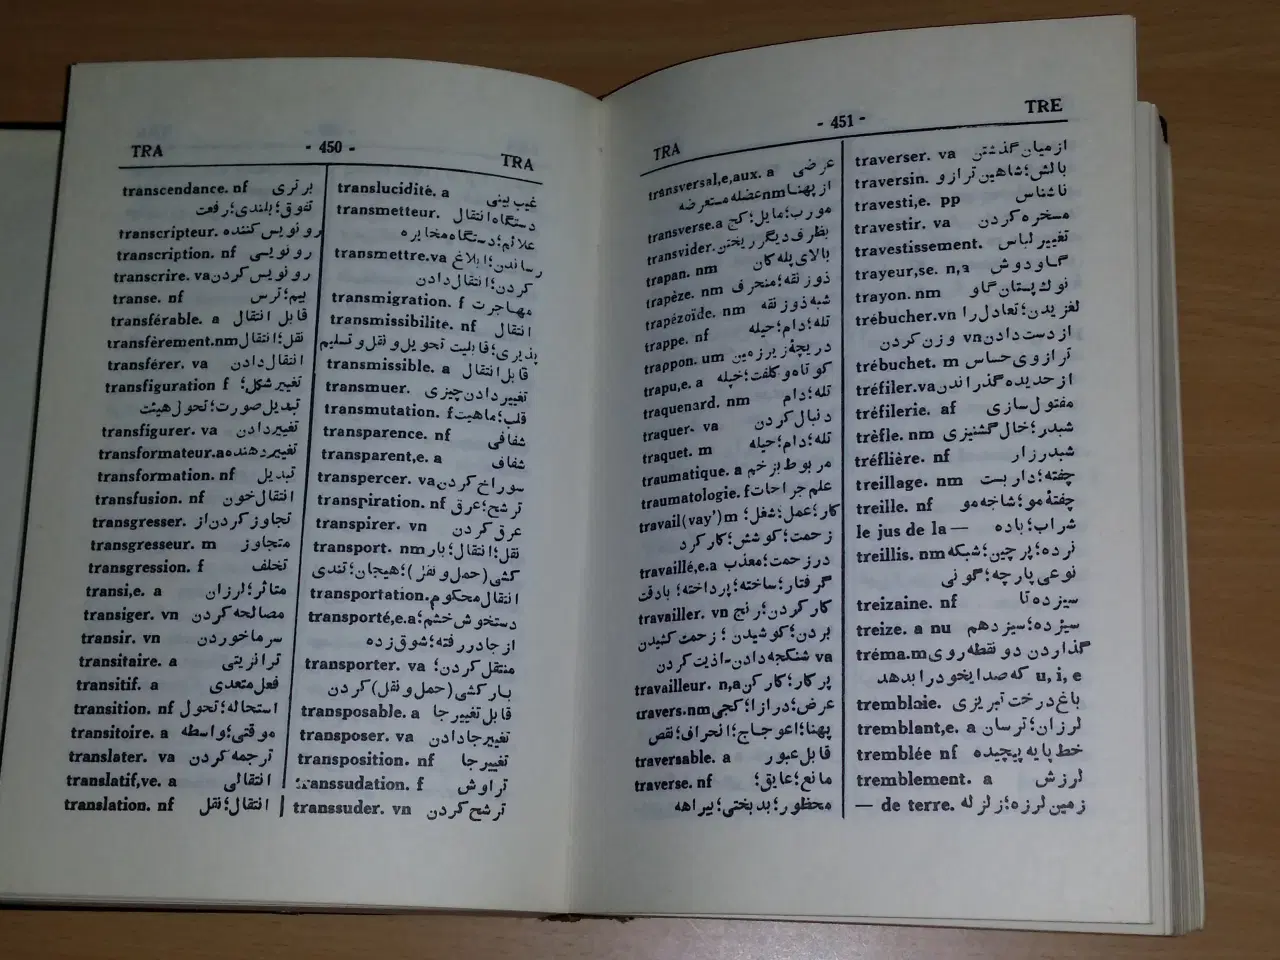 TRA - 450 - TRA
transcendance. nf برتری
تفوق؛بلندی؛رفعت
transcripteur. رونویس‌کننده
transcription. nf رونویسی
transcrire. va رونویس‌کردن
transe. nf بیم؛ترس
transférable. a قابل انتقال
transfèrement.nm نقل؛انتقال
transférer. va انتقال‌دادن
transfiguration f تغییرشکل؛
تبدیل صورت؛تحول‌هیئت
transfigurer. va تغییردادن
transformateur.a تغییردهنده
transformation. nf تبدیل
transfusion. nf انتقال‌خون
transgresser. تجاوز کردن‌از
transgresseur. m متجاوز
transgression. f تخلف
transi,e. a متاثر؛لرزان
transiger. vn مصالحه کردن
transir. vn سرماخوردن
transitaire. a ترانزیتی
transitif. a فعل‌متعدی
transition. nf استحاله؛تحول
transitoire. a موقتی؛واسطه
translater. va ترجمه کردن
translatif,ve. a انتقالی
translation. nf انتقال؛نقل
translucidité. a غیب‌بینی
transmetteur. دستگاه‌انتقال
علائم؛دستگاه‌مخابره
transmettre.va رساندن؛ابلاغ
کردن؛انتقال‌دادن
transmigration. f مهاجرت
transmissibilite. nf انتقال
پذیری؛قابلیت تحویل‌ونقل‌وتسلیم
transmissible. a قابل‌انتقال
transmuer. تغییردادن‌چیزی
transmutation. f قلب؛ماهیت
transparence. nf شفافی
transparent,e. a شفاف
transpercer. va سوراخ‌کردن
transpiration. nf ترشح؛عرق
transpirer. vn عرق‌کردن
transport. nm نقل؛انتقال؛بار
کشی(حمل‌ونقل)؛هیجان؛تندی
transportation. انتقال‌محکوم
transporté,e.a دستخوش‌خشم؛
ازجادررفته؛شوق‌زده
transporter. va منتقل‌کردن؛
بارکشی(حمل‌و نقل)کردن
transposable. a قابل‌تغییرجا
transposer. va تغییرجادادن
transposition. nf تغییرجا
transsudation. f تراوش
transsuder. vn ترشح‌کردن
TRA - 451 - TRE
transversal,e,aux. a عرضی
ازپهنا nm عضله مستعرضه
transverse.a مورب؛مایل؛کج
transvider. بظرف‌دیگرریختن
trapan. nm بالای‌پله‌کان
trapèze. nm ذوزنقه؛منحرف
trapézoïde. nm شبه‌ذوزنقه
trappe. nf تله؛دام؛حیله
trappon. um دریچهٔ‌زیرزمین
trapu,e. a کوتاه‌وکلفت؛خپله
traquenard. nm تله؛دام
traquer. va دنبال‌کردن
traquet. m تله؛دام؛حیله
traumatique. a مربوط‌بزخم
traumatologie. f علم‌جراحات
travail(vay') m کار؛عمل؛شغل؛
زحمت؛کوشش؛کارکرد
travaillé,e.a درزحمت؛معذب
گرفتار؛ساخته؛پرداخته؛بادقت
travailler. vn کارکردن؛رنج
بردن؛کوشیدن؛زحمت‌کشیدن
va شنکجه‌دادن-اذیت‌کردن
travailleur. n,a پرکار؛کارکن
travers.nm عرض؛درازا؛کجی
پهنا؛اعوجاج؛انحراف؛نقص
traversable. a قابل‌عبور
traverse. nf مانع؛عایق؛
محظور؛بدبختی؛بیراهه
traverser. va ازمیان‌گذشتن
traversin. بالش؛شاهین ترازو
travesti,e. pp ناشناس
travestir. va مسخره‌کردن
travestissement. تغییر لباس
trayeur,se. n,a گاودوش
trayon. nm نوك‌پستان‌گاو
trébucher.vn لغزیدن؛تعادل‌را
ازدست‌دادن vn وزن‌کردن
trébuchet. m ترازوی‌حساس
tréfiler.va ازحدیده‌گذراندن
tréfilerie. af مفتول‌سازی
trèfle. nm شبدر؛خال‌گشنیزی
tréflière. nf شبدرزار
treillage. nm چفته؛داربست
treille. nf چفتهٔ‌مو؛شاخه‌مو
le jus de la — شراب؛باده
treillis. nm نرده؛پرچین؛شبکه
نوعی‌پارچه؛گونی
treizaine. nf سیزده‌تا
treize. a nu سیزده؛سیزدهم
tréma.m گذاردن دو نقطه‌روی
u, i, e که‌صدایخودرابدهد
tremblaie. باغ‌درخت‌تبریزی
tremblant,e. a لرزان؛ترسان
tremblée nf خط‌پابه‌پیچیده
tremblement. a لرزش
— de terre. زمین‌لرزه؛زلزله